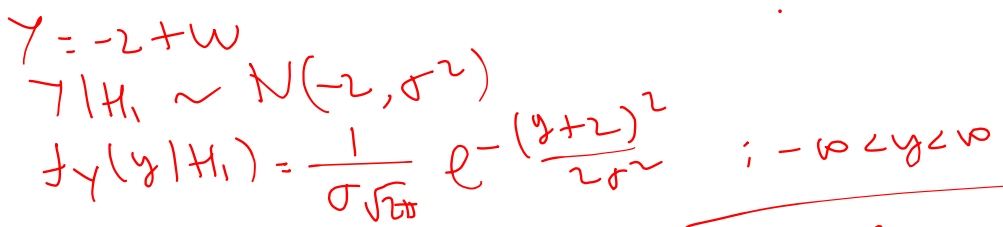 Y = -2 + W
Y|H₁ ~ N(-2, σ²)
f_Y(y|H₁) = 1/(σ√(2π)) e^(-(y+2)²/(2σ²)) ; -∞ < y < ∞